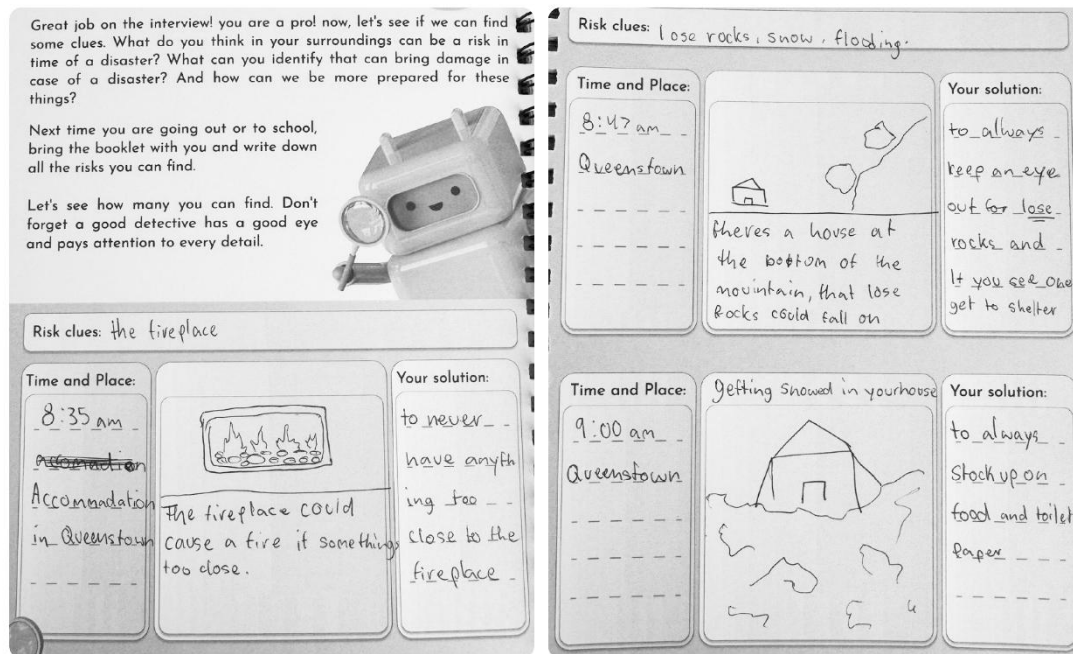 Great job on the interview! you are a pro! now, let's see if we can find
some clues. What do you think in your surroundings can be a risk in
time of a disaster? What can you identify that can bring damage in
case of a disaster? And how can we be more prepared for these
things?
Next time you are going out or to school,
bring the booklet with you and write down
all the risks you can find.
Let's see how many you can find. Don't
forget a good detective has a good eye
and pays attention to every detail.
Risk clues: the fireplace
Time and Place:
8:35 am
Accommadation
in Queenstown
The fireplace could
cause a fire if somethings
too close.
Your solution:
to never
have anyth
ing too
close to the
fireplace
Risk clues: lose rocks, snow, flooding.
Time and Place:
8:47 am
Queenstown
theres a house at
the bottom of the
mouintain, that lose
Rocks could fall on
Your solution:
to always
keep an eye
out for lose
rocks and
If you see one
get to shelter
Time and Place:
9:00 am
Queenstown
getting snowed in yourhouse
Your solution:
to always
stock up on
food and toilet
paper